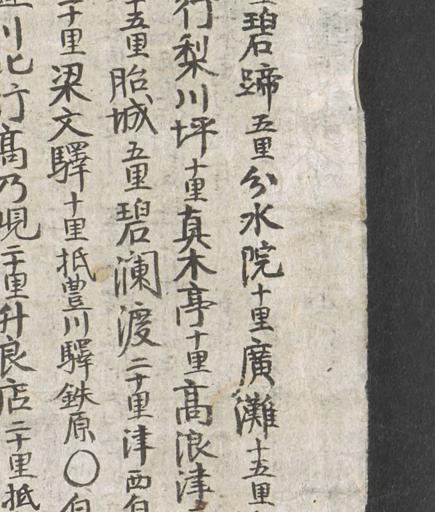 碧蹄五里分水院十里廣灘十五里
行梨川坪十里真木亭十里高浪津
十五里胎城五里碧瀾渡二十里津西自
十里梁文驛十里抵豊川驛鉄原○自
川北行高乃峴二十里升良店二十里抵